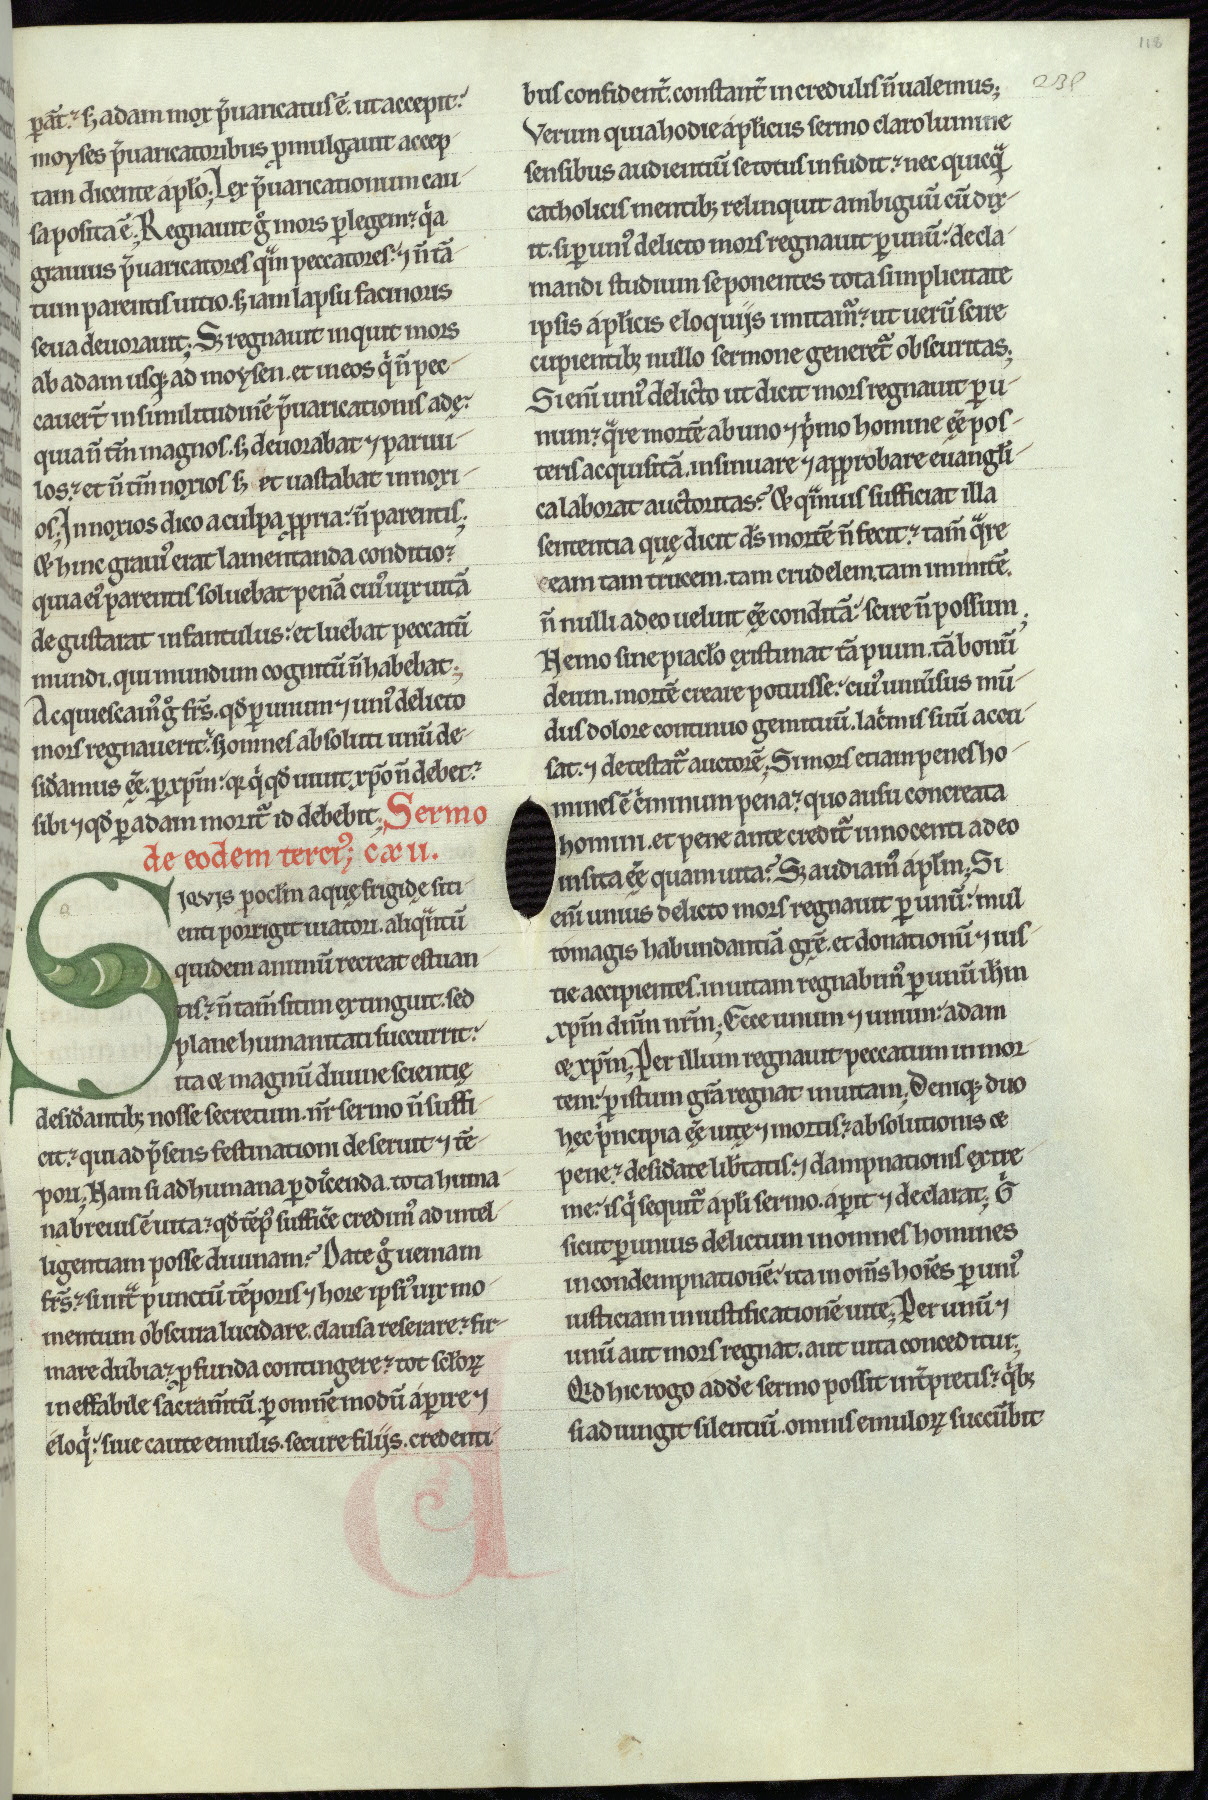 118
239
pat̄. sꝫ adam mox p̄uaricatus ē. ut accepit.
moyses p̄uaricatoribus ꝓmulgauit accep
tam dicente aplo; Lex p̄uaricationum cau-
sa posita ē; Regnauit gͦ mors ꝑ legem. qͥa
grauius p̄uaricatores qͣm peccatores. ⁊ n̄ tā-
tum parentis uitio. sꝫ iam lapsu facinoris
seua deuorauit; Sꝫ regnauit inquit mors
ab adam usqꝫ ad moysen. et in eos qͥ n̄ pec-
cauert̄ in similitudinē p̄uaricationis adę.
quia n̄ tm̄ magnos. sꝫ deuorabat ⁊ paruu-
los. et n̄ tm̄ noxios sꝫ et uastabat innoxi-
os; Innoxios dico a culpa ꝓpria. n̄ parentis;
& hinc grauiꝰ erat lamentanda conditio.
quia eiꝰ parentis soluebat penā cuiꝰ uix uitā
degustarat infantulus. et luebat peccatū
mundi. qui mundum cognitū n̄ habebat;
Acquiescamꝰ gͦ frs̄. qd̄ ꝑ unum ⁊ uniꝰ delicto
mors regnauerit. sꝫ omnes absoluti unū de-
sid̓amus eē. ꝑ xp̄m. qꝛ qͥ qd̄ uiuit xp̄o n̄ debet.
sibi ⁊ qd̄ ꝑ adam morit᷑ id debebit; Sermo
de eodem terciꝰ; cxu.
SIQVIS poclm̄ aquę frigidę siti-
enti porrigit uiatori. aliqͣntū
quidem animū recreat estuan-
tis. n̄ tam̄ sitim extinguit. sed
plane humanitati succurrit.
ita & magnū diuine scientię
desid̓antibꝫ nosse secretum. nr̄ sermo n̄ suffi-
cit. qui ad p̄sens festinationi deseruit ⁊ tē-
pori; Nam si ad humana ꝑdiscenda. tota huma-
na breuis ē uita. qd̄ tēpꝰ suffic̓e credimꝰ ad intel-
ligentiam posse diuinam. Date gͦ ueniam
frs̄. si int᷑ punctū tēporis ⁊ hore ipsiꝰ uix mo-
mentum obscura lucidare. clausa reserare. fir-
mare dubia. ꝓfunda contingere. tot sclorꝝ
ineffabile sacram̄tū. ꝑ omnē modū apire ⁊
eloqͥ. siue caute emulis. secure filijs. credenti-
bus confident̓. constant̓ incredulis n̄ ualemus;
Verum quia hodie aplicus sermo claro lumine
sensibus audientiū se totus infudit. nec quicqͣ
catholicis mentibꝫ relinquit ambiguū cū dix-
it. si ꝑ uniꝰ delicto mors regnauit ꝑ unū. decla-
mandi studium seponentes tota simplicitate
ipsis aplicis eloquijs imitam᷑. ut uerū scire
cupientibꝫ nullo sermone generet᷑ obscuritas;
Si eni͛ uniꝰ delicto ut dicit mors regnauit ꝑ u-
num. qͣre mortē ab uno ⁊ pͥmo homine eē pos-
teris acquisitā. insinuare ⁊ approbare euangli-
ca laborat auctoritas. & qͣmuis sufficiat illa
sententia quę dicit ds̄ mortē n̄ fecit. tam̄ qͣre
eam tam trucem. tam crudelem. tam immitē.
n̄ nulli a deo uelint eē conditā. scire n̄ possum;
Nemo sine piaclo existimat tā pium. tā bonū
deum. mortē creare potuisse. cuiꝰ uniu̓sus mū-
dus dolore continuo gemituū. lac̓mis sitū accu-
sat. ⁊ detestat᷑ auctorē; Si mors etiam penes ho-
mines ē cͥminum pena. quo ausu concreata
homini. et pene ante credit᷑ innocenti a deo
insita eē quam uita. Sꝫ audiamꝰ aplm̄; Si
eni͛ unius delicto mors regnauit ꝑ unū. mul
to magis habundantiā grē. et donationū ⁊ ius-
tie accipientes. in uitam regnabimꝰ ꝑ unū ih̄m
xp̄m dn̄m nr̄m; Ecce unum ⁊ unum. adam
& xp̄m; Per illum regnauit peccatum in mor
tem. ꝑ istum gr̄a regnat in uitam; Deniqꝫ duo
hęc pͥncipia eē uitę ⁊ mortis. absolutionis &
pene. desid̓ate lib̓tatis. ⁊ dampnationis extre
me. is qͥ sequit᷑ apli sermo. apit ⁊ declarat; Gͦ
sicut ꝑ unius delictum in omnes homines
in condempnationē. ita in om̄s hoīes ꝑ uniꝰ
iusticiam in iustificationē uite; Per unū ⁊
unū aut mors regnat. aut uita conceditur;
Qͥd hic rogo add̓e sermo possit int̓pretis. qͥbꝫ
si adiungit silentiū. omnis emulorꝝ succūbit